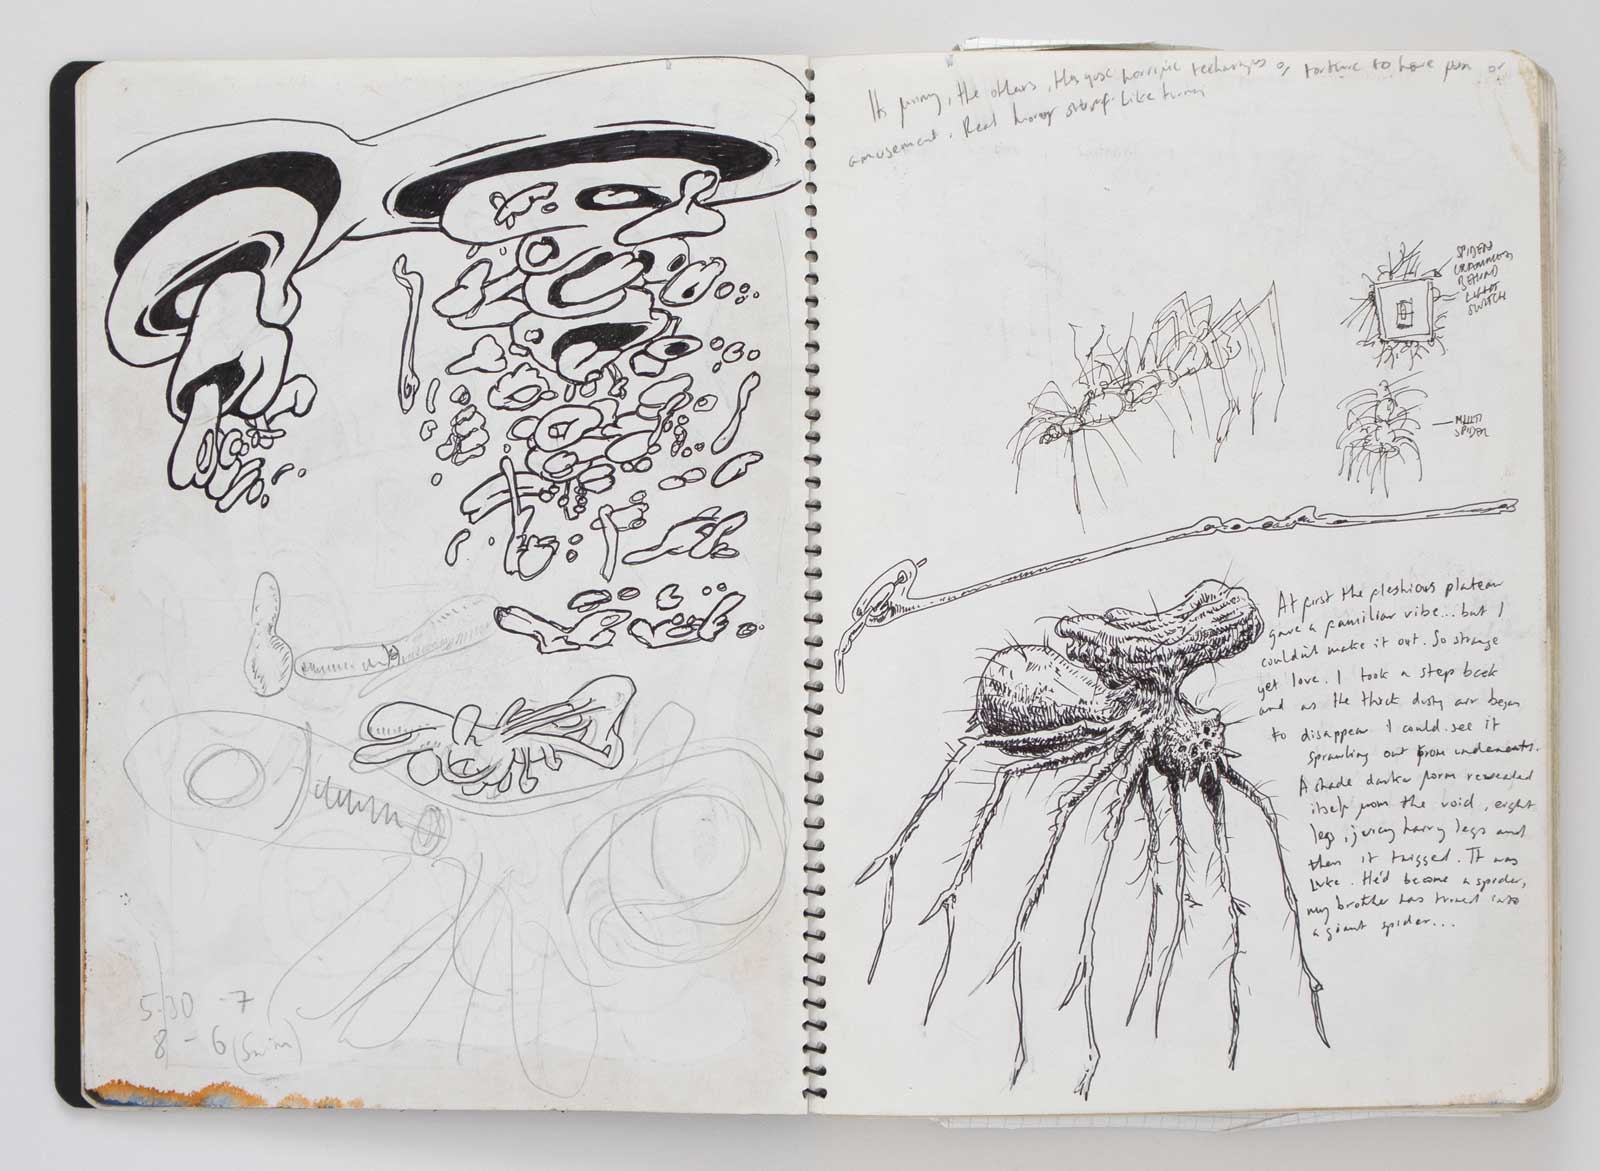 5.30 - 7
8 - 6 (Swim)
Its funny, the others, this guy horrific techniques of torture to have fun or
amusement. Real horror stuff. Like turning
SPIDERS
CRAMMED
BEHIND
LIGHT
SWITCH
MULTI
SPIDER
At first the fleshious plateau
gave a familiar vibe... but I
couldnt make it out. So strange
yet love. I took a step back
and as the thick dusty air began
to disappear I could see it
sprawling out from underneath.
A shade darker form revealed
itself from the void, eight
legs, jerky harry legs and
then it twigged. It was
Luke. He'd become a spider,
my brother has turned into
a giant spider...